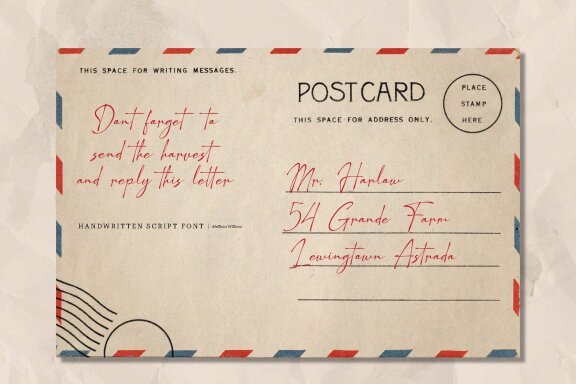 THIS SPACE FOR WRITING MESSAGES.
Dont forget to
send the harvest
and reply this letter
HANDWRITTEN SCRIPT FONT |
POSTCARD
THIS SPACE FOR ADDRESS ONLY.
PLACE
STAMP
HERE
Mr. Harlaw
54 Grande Farm
Lewingtown Astrada